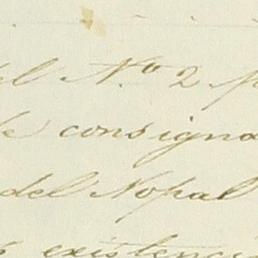 del N.º 2 p
de consigna
del Nopal
existenci